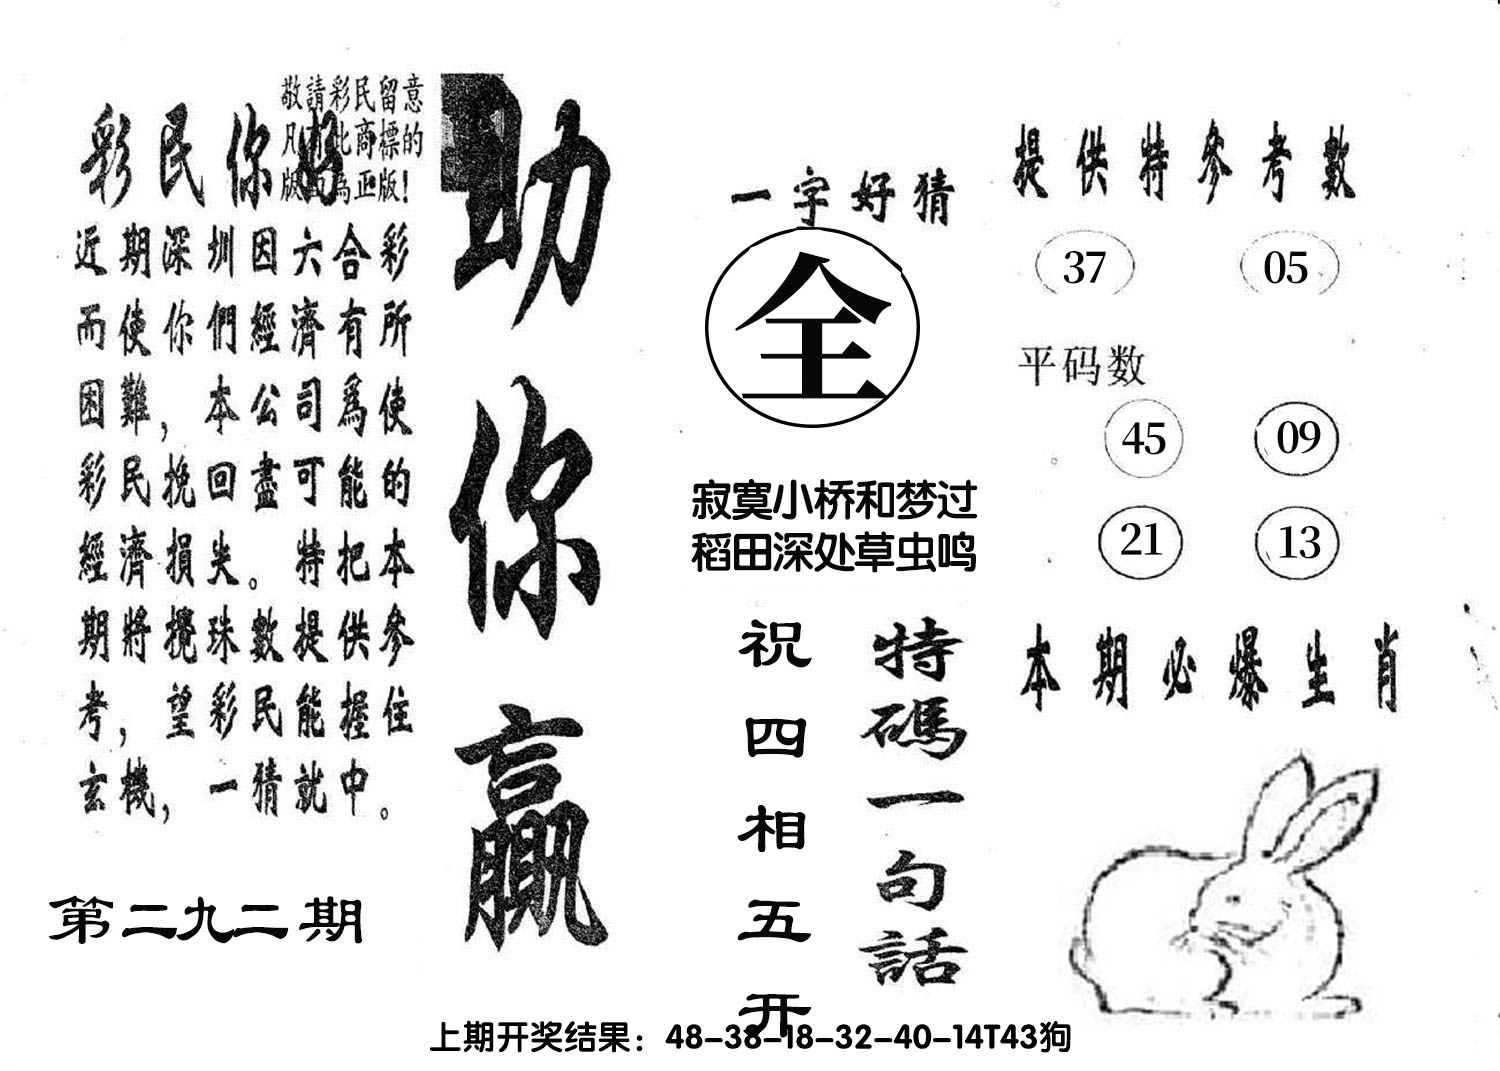 敬請彩民留意
凡有此商標的
版面為正版！
彩民你好
近期深圳因六合彩
而使你們經濟有所
困難，本公司爲使
彩民挽回盡可能的
經濟損失。特把本
期將攪珠數提供參
考，望彩民能握住
玄機，一猜就中。
第二九二期
助你贏
一字好猜
全
寂寞小桥和梦过
稻田深处草虫鸣
特碼一句話
祝四相五开
提供特參考數
37 05
平码数
45 09
21 13
本期必爆生肖
上期开奖结果：48-38-18-32-40-14T43狗